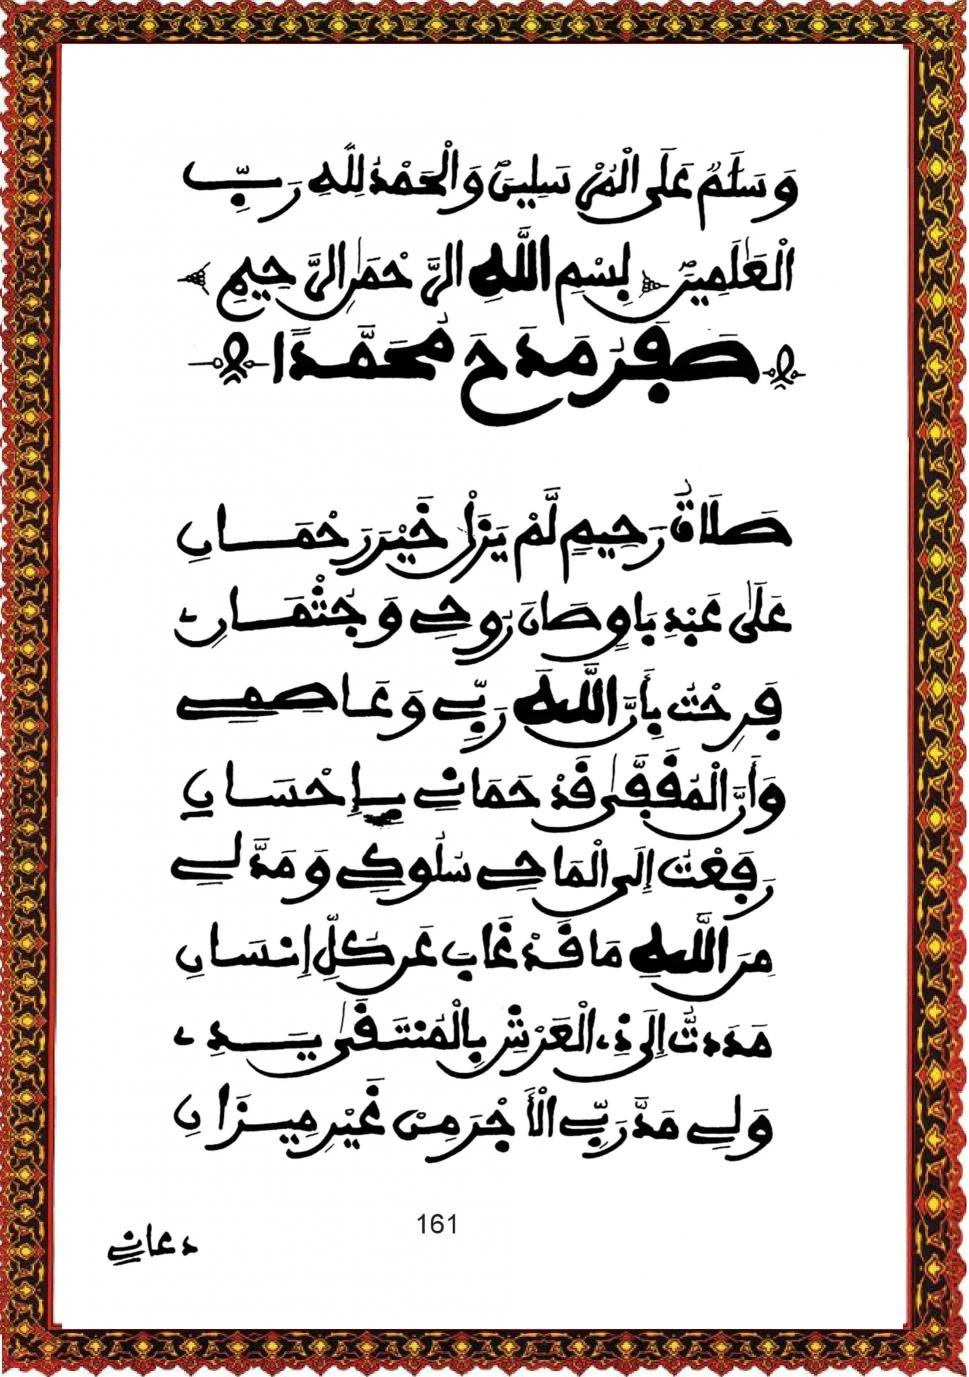 وَسَلَٰمٌ عَلَى الْمُرْسَلِينَ وَالْحَمْدُ لِلَّهِ رَبِّ
الْعَٰلَمِينَ بِسْمِ اللَّهِ الرَّحْمَٰنِ الرَّحِيمِ
صَفَرْ مَدَحَ مُحَمَّدًا
صَلَاةُ رَحِيمٍ لَّمْ يَزَلْ خَيْرَ رَحْمَانِ
عَلَى عَبْدِ بَاوٍ صَانَ رُوحِي وَجُثْمَانِ
فَرِحْتُ بِأَنَّ اللَّهَ رَبِّي وَعَاصِمِي
وَأَنَّ الْمُقَفَّى قَدْ حَمَانِي بِإِحْسَانِ
رَفَعْتُ إِلَى الْمَاحِي سُلُوكِي وَمَدَّ لِي
مِنَ اللَّهِ مَا قَدْ غَابَ عَن كُلِّ إِنسَانِ
مَدَدتُّ إِلَى ذِے الْعَرْشِ بِالْمُنتَقَى يَدِے
وَلِي مَدَّ رَبِّي الْأَجْرَ مِنْ غَيْرِ مِيزَانِ
161
دعاني